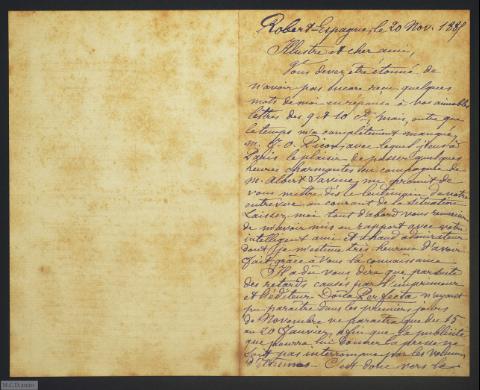 Robert-Espagne, le 20 Nov. 188
Illustre et cher ami,
Vous devez être étonné de
n'avoir pas encore reçu quelques
mots de moi en réponse à vos aimables
lettres des 9 et 10 ct; mais, outre que
le temps m'a complètement manqué,
M. J. O. Picon, avec lequel j'eus à
Paris le plaisir de passer quelques
heures charmantes en compagnie de
M. Albert Savine, me promit de
vous mettre dès le lendemain de notre
entrevue au courant de la situation.
Laissez-moi tout d'abord vous remercier
de m'avoir mis en rapport avec votre
intelligent ami et chaud admirateur
dont je m'estime très heureux d'avoir
fait grâce à vous la connaissance.
Il a dû vous dire que par suite
des retards causés par l'imprimeur
et l'éditeur Doña Perfecta n'ayant
pu paraître dans les premiers jours
de Novembre ne paraîtra que du 15
au 20 Janvier, afin que la publicité
que pourra lui donner la presse ne
soit pas interrompue par les volumes
d'Étrennes. C'est donc vers le